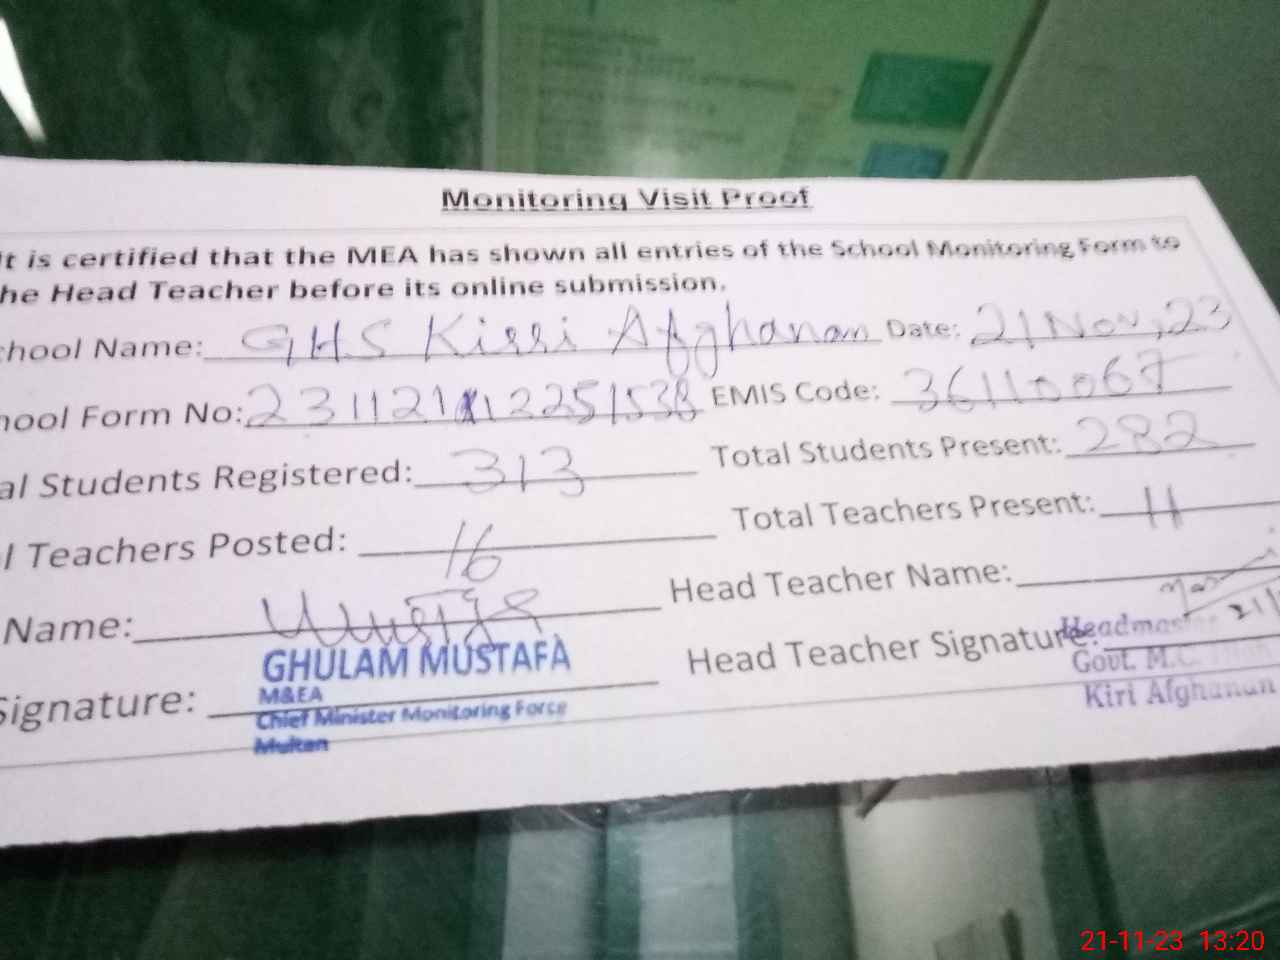 Monitoring Visit Proof
it is certified that the MEA has shown all entries of the School Monitoring Form to
he Head Teacher before its online submission.
chool Name: GHS Kirri Afghanan Date: 21 Nov, 23
hool Form No: 231121 12251538 EMIS Code: 36110067
al Students Registered: 313 Total Students Present: 282
l Teachers Posted: 16 Total Teachers Present: 11
Name: Head Teacher Name:
Signature: Head Teacher Signature:
GHULAM MUSTAFA
M&EA
Chief Minister Monitoring Force
Multan
Headmas
Govt. M.C.
Kiri Afghanan
21-11-23 13:20